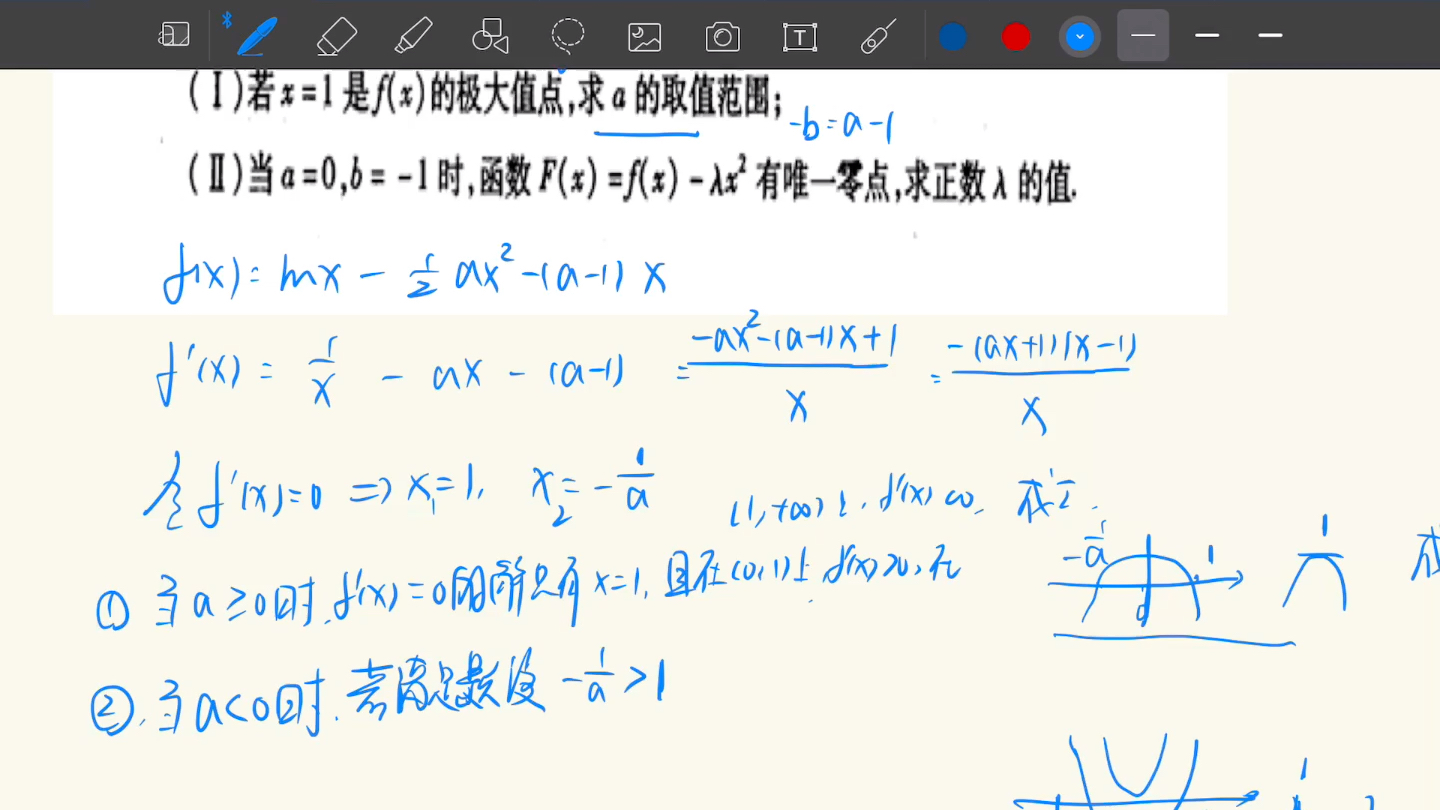 (Ⅰ)若x=1是f(x)的极大值点,求a的取值范围;
-b=a-1
(Ⅱ)当a=0,b=-1时,函数F(x)=f(x)-λx²有唯一零点,求正数λ的值.
f(x)=lnx-\frac{1}{2}ax²-(a-1)x
f'(x)=\frac{1}{x}-ax-(a-1)=\frac{-ax²-(a-1)x+1}{x}=\frac{-(ax+1)(x-1)}{x}
令f'(x)=0⇒x₁=1, x₂=-\frac{1}{a}
(1,+∞)上,f'(x)<0,成立.
①当a≥0时,f'(x)=0的解只有x=1,且在(0,1)上f'(x)>0,在
-\frac{1}{a} 1
0
1
成
②.当a<0时,若满足 -\frac{1}{a}>1
1